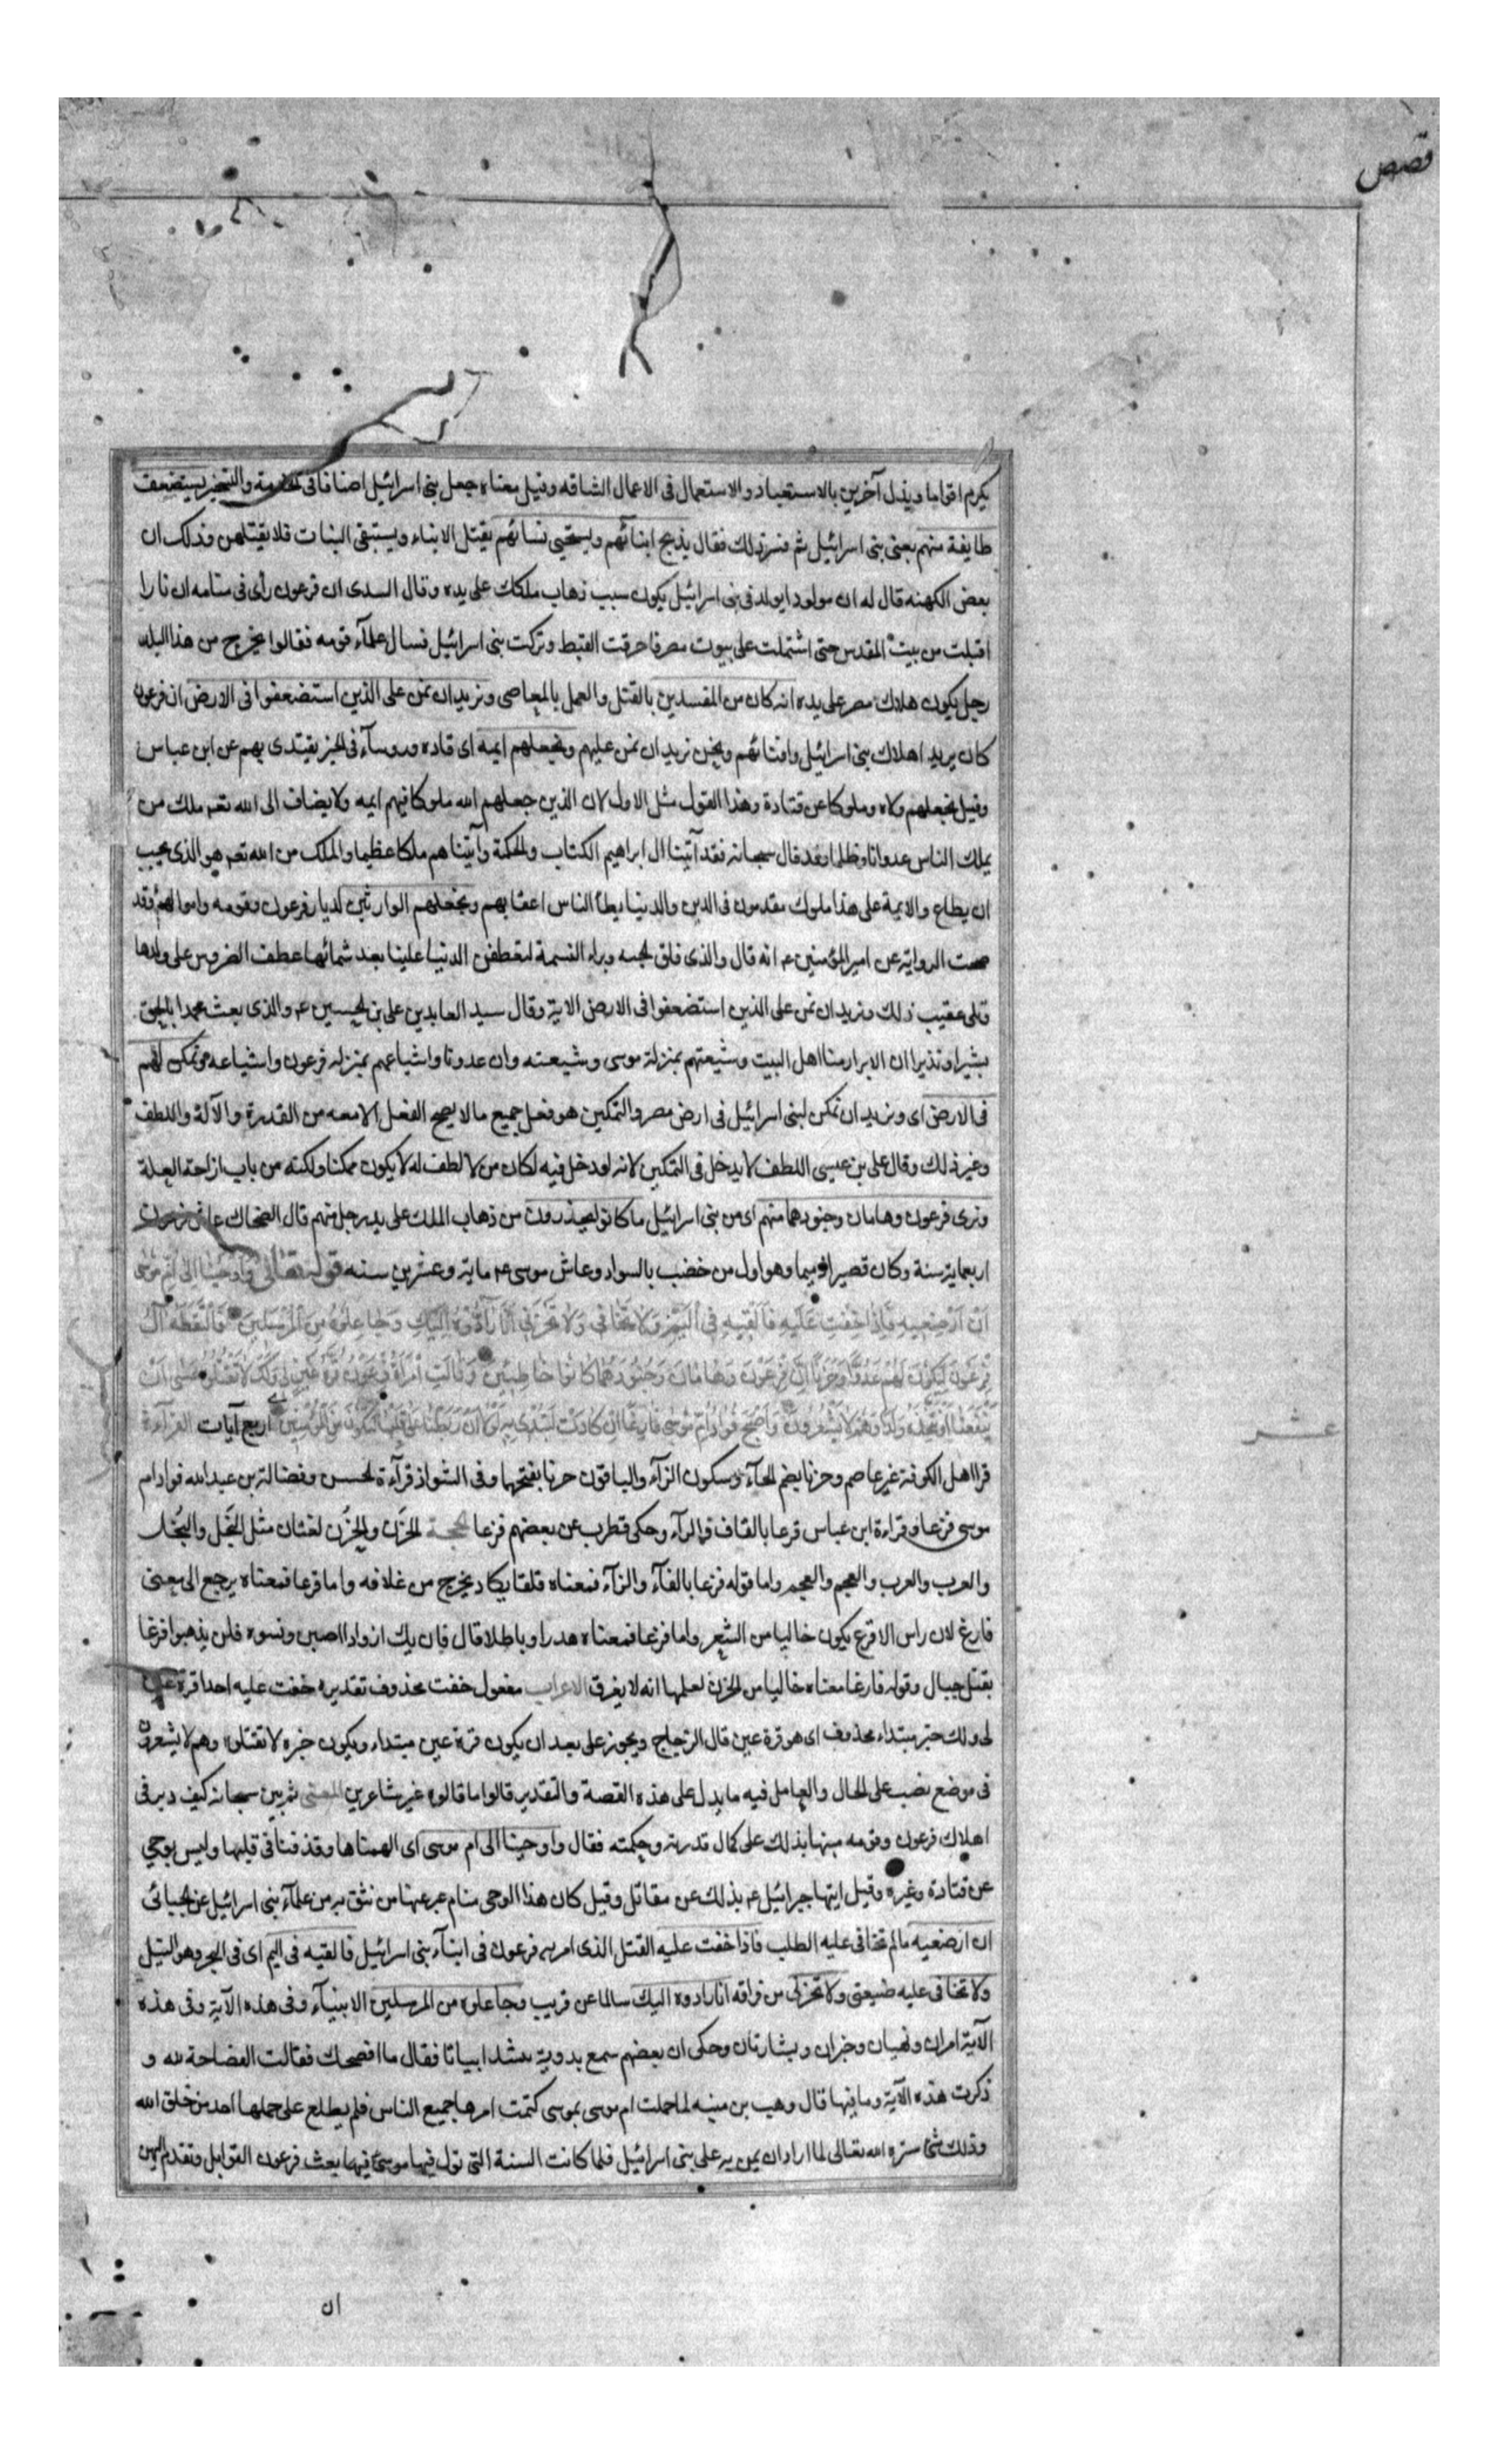 قصص
يكرم اقواما ويذل آخرين بالاستعباد والاستعمال فى الاعمال الشاقه وقيل معناه جعل بنى اسرائيل اصنافا فى الخدمة والتسخير يستضعف
طايفة منهم يعنى بنى اسرائيل ثم فسر ذلك فقال يذبح ابنائهم ويستحيى نسائهم يقتل الابناء ويستبقى البنات فلا يقتلهن وذلك ان
بعض الكهنه قال له ان مولودا يولد فى بنى اسرائيل يكون سبب ذهاب ملكك على يده وقال السدى ان فرعون رأى فى منامه ان نارا
اقبلت من بيت المقدس حتى اشتملت على بيوت مصر فاحرقت القبط وتركت بنى اسرائيل فسال علمآء قومه فقالوا يخرج من هذا البلد
رجل يكون هلاك مصر على يده انه كان من المفسدين بالقتل والعمل بالمعاصى ونريد ان نمن على الذين استضعفوا فى الارض ان فرعون
كان يريد اهلاك بنى اسرائيل وافنائهم ونحن نريد ان نمن عليهم ونجعلهم ايمه اى قاده وروسآء فى الخير يقتدى بهم عن ابن عباس
وقيل نجعلهم ولاه وملوكا عن قتادة وهذا القول مثل الاول لان الذين جعلهم الله ملوكا فهم ايمه ولا يضاف الى الله تعم ملك من
يملك الناس عدوانا وظلما وقد قال سبحانه فقد آتينا ال ابراهيم الكتاب والحكمة وآتيناهم ملكا عظيما والملك من الله تعم هو الذى يجب
ان يطاع والايمة على هذا ملوك مقدمون فى الدين والدنيا يطأ الناس اعقابهم ونجعلهم الوارثين لديار فرعون وقومه واموالهم وقد
صحت الرواية عن امير المؤمنين عم انه قال والذى فلق الحبه وبراء النسمة لتعطفن الدنيا علينا بعد شماسها عطف الضروس على ولدها
وتلى عقيب ذلك ونريد ان نمن على الذين استضعفوا فى الارض الاية وقال سيد العابدين على بن الحسين عم والذى بعث محمدا بالحق
بشيرا ونذيرا ان الابرار منا اهل البيت وشيعتهم بمنزلة موسى وشيعته وان عدونا واشياعهم بمنزله فرعون واشياعه ونمكن لهم
فى الارض اى ونريد ان نمكن لبنى اسرائيل فى ارض مصر والتمكين هو فعل جميع ما لا يصح الفعل الا معه من القدرة والآلة واللطف
وغير ذلك وقال على بن عيسى اللطف لا يدخل فى التمكين لانه لو دخل فيه لكان من لا لطف له لا يكون ممكنا ولكنه من باب ازاحة العلة
ونرى فرعون وهامان وجنودهما منهم اى من بنى اسرائيل ما كانوا يحذرون من ذهاب الملك على يد رجل منهم قال الضحاك عاش فرعون
اربعماية سنة وكان قصيرا دميما وهو اول من خضب بالسواد وعاش موسى عم ماية وعشرين سنه قوله تعالى وَاَوحَينَا اِلىَ اُمِّ مُوسَى
اَنْ اَرْضِعِيهِ فَاِذَا خِفْتِ عَلَيهِ فَاَلْقِيهِ فِى الْيَمِّ وَلَا تَخَافِى وَلَا تَحْزَنِى اِنَّا رَادُّوهُ اِلَيْكِ وَجَاعِلُوهُ مِنَ الْمُرْسَلِينَ فَالْتَقَطَهُ آلُ
فِرْعَوْنَ لِيَكُونَ لَهُمْ عَدُوًّا وَحَزَنًا اِنَّ فِرْعَوْنَ وَهَامَانَ وَجُنُودَهُمَا كَانُوا خَاطِئِينَ وَقَالَتِ امْرَاَةُ فِرْعَوْنَ قُرَّةُ عَيْنٍ لِى وَلَكَ لَا تَقْتُلُوهُ عَسَى اَنْ
يَنْفَعَنَا اَوْ نَتَّخِذَهُ وَلَدًا وَهُمْ لَا يَشْعُرُونَ وَاَصْبَحَ فُؤَادُ اُمِّ مُوسَى فَارِغًا اِنْ كَادَتْ لَتُبْدِى بِهِ لَوْلَا اَنْ رَبَطْنَا عَلَى قَلْبِهَا لِتَكُونَ مِنَ الْمُؤْمِنِينَ اربع آيات القرآءة
عشر
قرا اهل الكوفة غير عاصم وحزنا بضم الحآء وسكون الزآء والباقون حزنا بفتحهما وفى الشواذ قرآءة الحسن وفضالة بن عبد الله فواد ام
موسى فزعا وقراءة ابن عباس قرعا بالقاف والرآء وحكى قطرب عن بعضهم فرغا الحجة الحَزَن والحُزْن لغتان مثل البَخَل والبُخل
والعرب والعرب والعجم والعجم واما قوله فزعا بالفآء والزآء فمعناه قلقا يكاد يخرج من غلافه واما قرعا فمعناه يرجع الى معنى
فارغ لان راس الاقرع يكون خاليا من الشعر واما فرغا فمعناه هدرا وباطلا قال فان يك اذواد اصبن ونسوه فلن يذهبوا فرغا
بقتل حبال وقوله فارغا معناه خاليا من الحزن لعلمها انه لا يغرق الاعراب مفعول خفت محذوف تقديره خفت عليه احدا قرة عين
لى ولك خبر مبتداء محذوف اى هو قرة عين قال الزجاج ويجوز على بعد ان يكون قرة عين مبتداء ويكون خبره لا تقتلوه وهم لا يشعرون
فى موضع نصب على الحال والعامل فيه ما يدل على هذه القصة والتقدير قالوا ما قالوه غير شاعرين المعنى ثم بين سبحانه كيف دبر فى
اهلاك فرعون وقومه منبها بذلك على كمال قدرته وحكمته فقال واوحينا الى ام موسى اى الهمناها وقذفنا فى قلبها وليس بوحي
عن قتادة وغيره وقيل اتيها جبرائيل عم بذلك عن مقاتل وقيل كان هذا الوحى منام عبر عنها من نثق به من علمآء بنى اسرائيل عن الجبائى
ان ارضعيه ما لم تخافى عليه الطلب فاذا خفت عليه القتل الذى امر به فرعون فى ابنآء بنى اسرائيل فالقيه فى اليم اى فى البحر وهو النيل
ولا تخافى عليه ضيعتى ولا تحزنى من فراقه انا رادوه اليك سالما عن قريب وجاعلوه من المرسلين الانبيآء وفى هذه الآية وفى هذه
الآية امران ونهيان وخبران وبشارتان وحكى ان بعضهم سمع بدوية تنشد ابياتا فقال ما افصحك فقالت الفصاحة لله و
ذكرت هذه الآية وما فيها قال وهب بن منبه لما حملت ام موسى بموسى كتمت امرها جميع الناس فلم يطلع على حملها احد من خلق الله
وذلك شئ ستره الله تعالى لما اراد ان يمن به على بنى اسرائيل فلما كانت السنة التى تولد فيها موسى فيها بعث فرعون القوابل وتقدم اليهن
ان